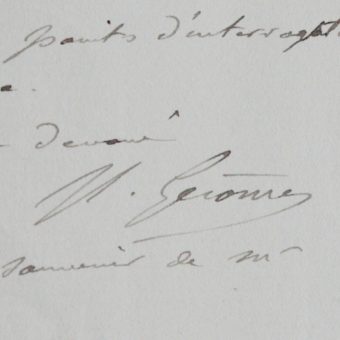 points d'interrogat
e.
devoué
H. Gérome
souvenir de mr